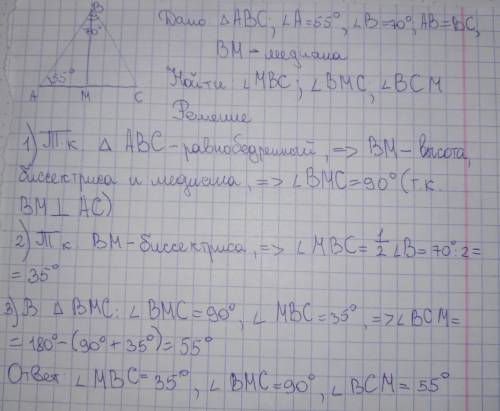 Дано △ABC; ∠A=55°, ∠B=70°, AB=BC,
BM – медиана
Найти ∠MBC; ∠BMC, ∠BCM
Решение
B
70°
55°
A M C
1) Т.к. △ ABC – равнобедренный, => BM – высота,
биссектриса и медиана, => ∠BMC=90° (т.к.
BM⊥AC)
2) Т.к. BM – биссектриса, => ∠MBC= 1/2 ∠B= 70°:2=
= 35°
3) В △ BMC: ∠BMC=90°, ∠ MBC=35°, => ∠BCM=
= 180°-(90°+35°)=55°
Ответ: ∠MBC=35°, ∠BMC=90°, ∠BCM=55°